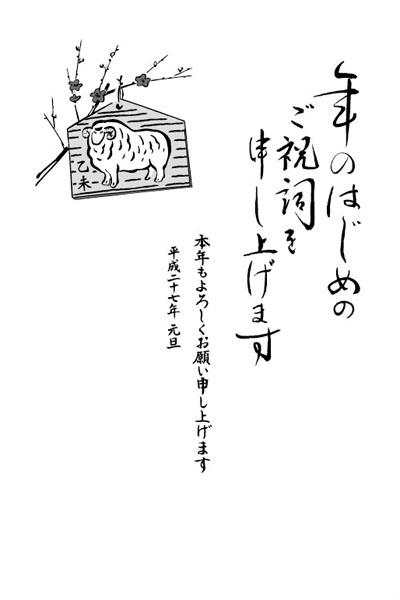 年のはじめの
ご祝詞を
申し上げます
本年もよろしくお願い申し上げます
平成二十七年 元旦
乙未